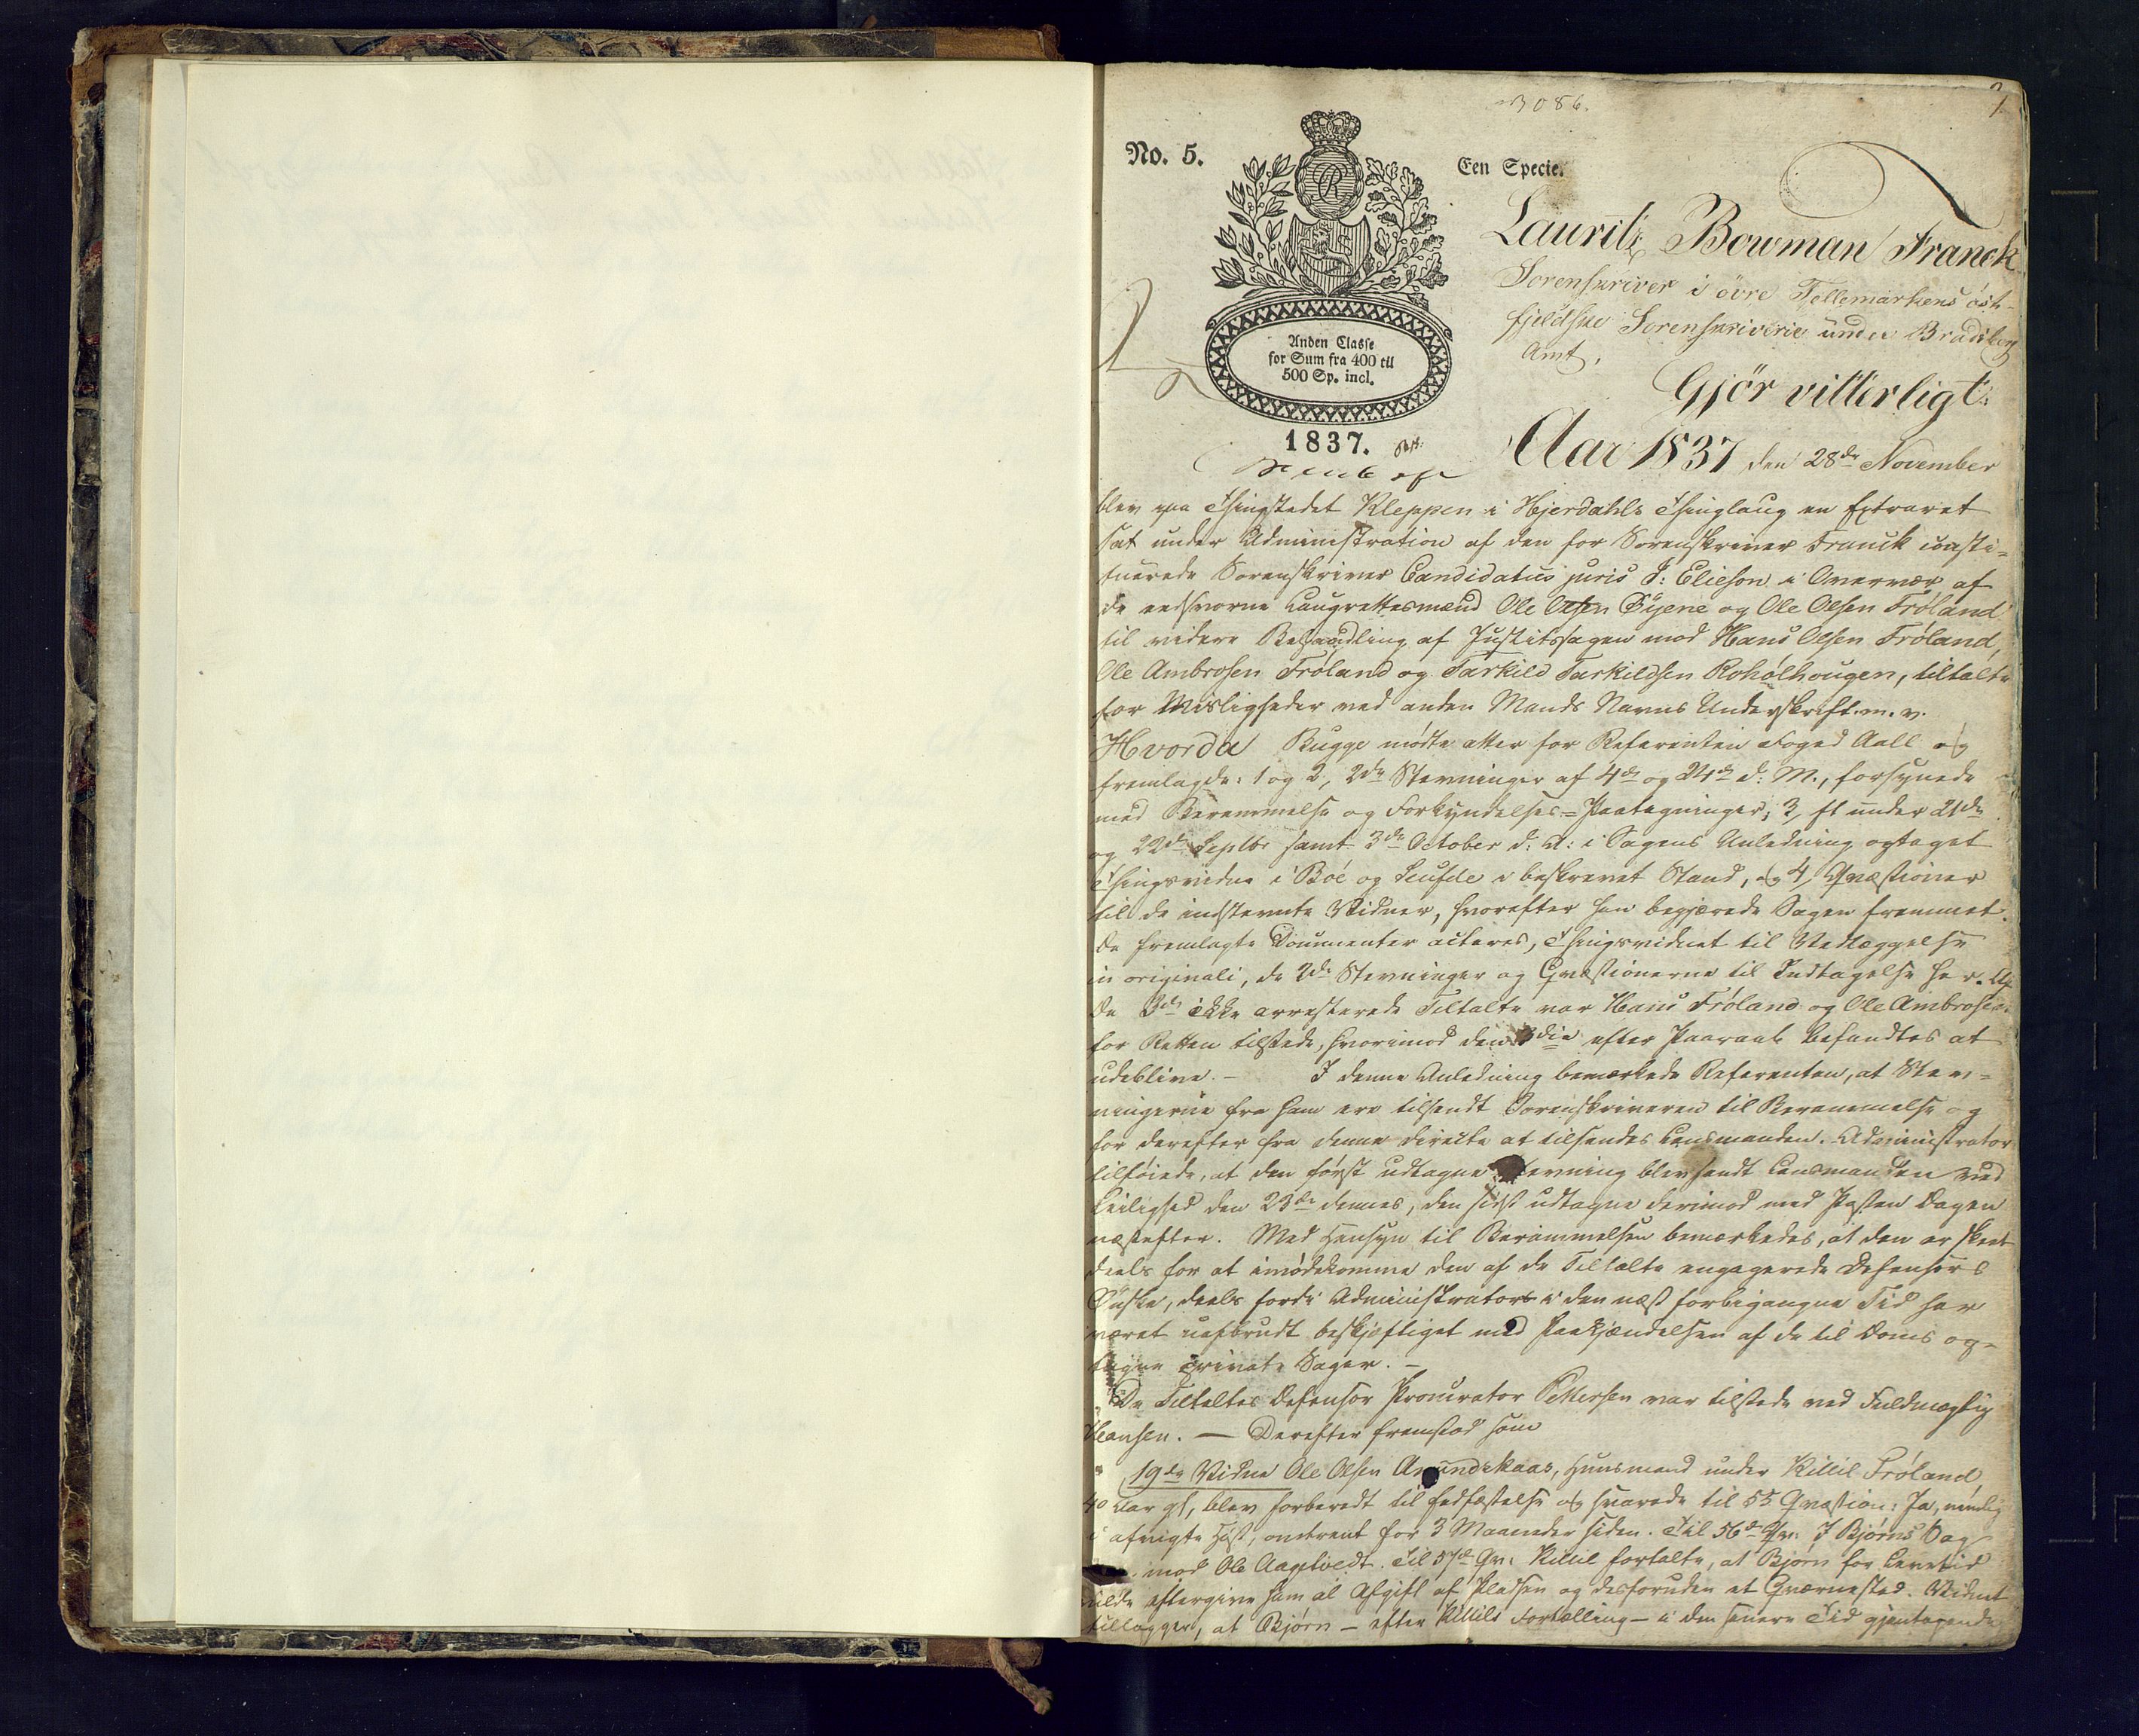 3086.
No. 5.
Een Specie.
Lauritz Bowman Franck
Sorenskriver i övre Tellemarkens öst-
fjeldske Sorenskriverie under Bradsberg
Amt,
Gjör vitterligt:
Anden Classe
for Sum fra 400 til
500 Sp. incl.
1837.
Aar 1837 den 28de November
blev paa Thingstedet Kleppen i Hjerdahls Thinglaug en Extraret
sat under Administration af den for Sorenskriver Franck consti-
tuerede Sorenskriver Candidatus juris J: Elieson i Overvær af
de eedsvorne Laugrettesmænd Ole Olsen Öÿene og Ole Olsen Fröland
til videre Behandling af Justitssagen mod Hans Olsen Fröland,
Ole Ambrosen Fröland og Tarkild Tarkildsen Roholhougen, tiltalte
for Misligheder ved anden Mands Navns Underskrift m. v.
Hvorda Bugge mødte atter for Referenten Foged Aall og
fremlagde: 1 og 2, 2de Stevninger af 4de og 24de d: M., forsynede
med Berammelse og Forkyndelses-Paategninger; 3, et under 21de
og 22de Septbr samt 3de October d: A: i Sagens Anledning optaget
Thingsvidne i Böe og Seufde i beskrevet Stand, og 4, Qvæstioner
til de indstevnte Vidner, hvorefter han begjærede Sagen fremmet.
De fremlagte Documenter acteres, Thingsvidnet til Vedlæggelse
in originali, de 2de Stevninger og Qvæstionerne til Indtagelse her.
De 2de ikke arresterede Tiltalte var Hans Fröland og Ole Ambrosen
for Retten tilstede, hvorimod den 3die efter Paaraab befandtes at
udeblive. – I denne Anledning bemærkede Referenten, at Stev-
ningerne fra ham ere tilsendt Sorenskriveren til Berammelse og
for derefter fra denne directe at tilsendes Lensmanden. Administrator
tilföiede, at den först udtagne Stevning blev sendt Lensmanden ved
Leilighed den 23de dennes, den sidst udtagne derimod med Posten Dagen
næstefter. Med Hensyn til Berammelsen bemærkedes, at den er skeet
deels for at imödekomme den af de Tiltalte engagerede Defensors
Önske, deels fordi Administrator i den næst forbigangne Tid har
været uafbrudt beskjæftiget med Paakjendelsen af de til Doms op-
tagne private Sager. –
De Tiltaltes Defensor Procurator Pettersen var tilstede ved Fuldmægtig
Hansen. — Derefter fremstod som
19de Vidne Ole Olsen Amundskaas, Huusmand under Kittil Fröland
40 Aar gl, blev forberedt til Eedfæstelse og svarede til 55 Qvæstion: Ja, nemlig
i afvigte Höst, omtrent for 3 Maaneder siden. Til 56de Qv: I Björns Sag
mod Ole Aagetvedt. Til 57de Qv: Kittil fortalte, at Björn for Levetid
vilde eftergive ham al Afgift af Pladsen og desforuden et Qværnested. Vidnet
tillægger, at Björn – efter Kittils Fortælling – i den senere Tid gjentagende